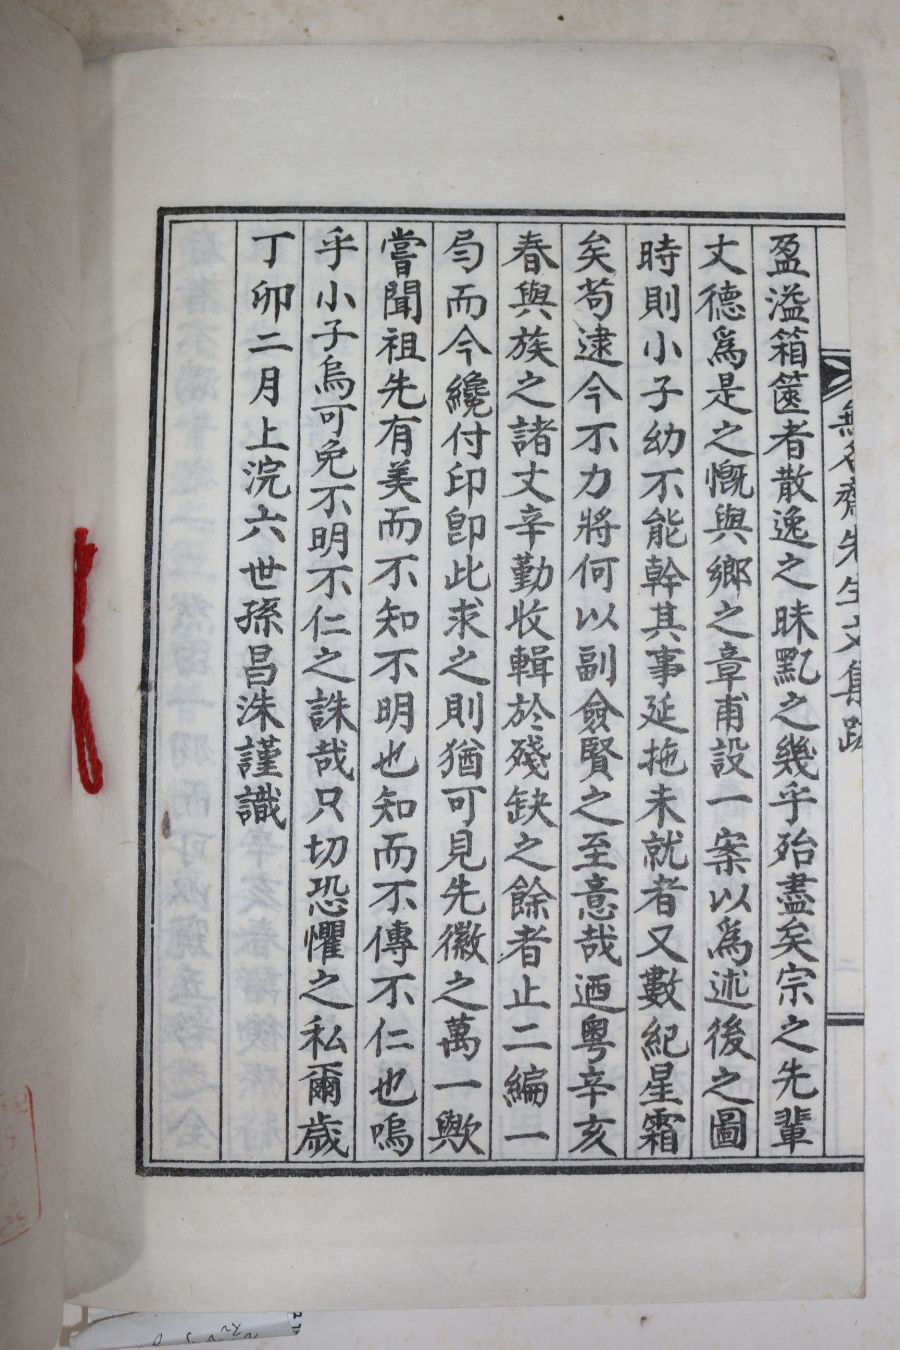 無名齋先生文集跋
盈溢箱篋者散逸之昧㽎之幾乎殆盡矣宗之先輩
丈德爲是之慨與鄉之章甫設一案以爲述後之圖
時則小子幼不能幹其事延拖未就者又數紀星霜
矣苟逮今不力將何以副僉賢之至意哉迺粤辛亥
春與族之諸丈辛勤收輯於殘缺之餘者止二編一
局而今纔付印卽此求之則猶可見先徽之萬一歟
嘗聞祖先有美而不知不明也知而不傳不仁也嗚
乎小子烏可免不明不仁之誅哉只切恐懼之私爾歲
丁卯二月上浣六世孫昌洙謹識